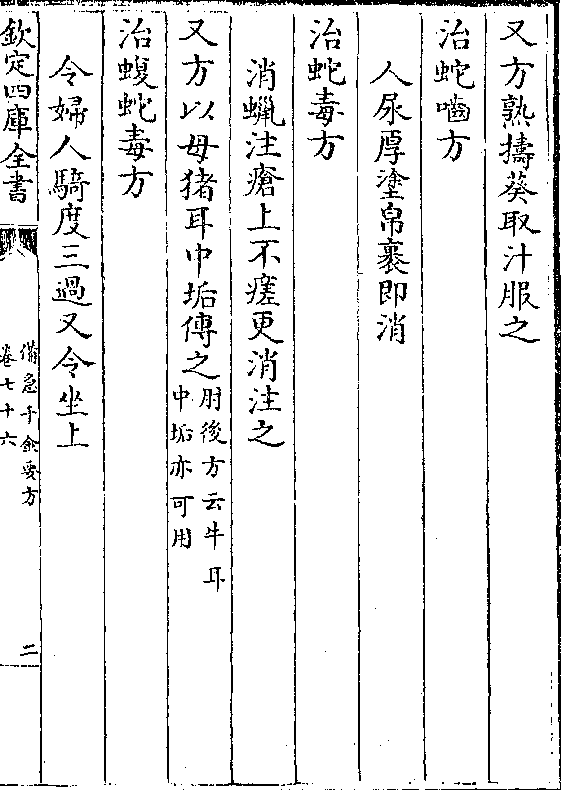 又方熟擣葵取汁服之
治蛇嚙方
人尿厚塗帛裹即消
治蛇毒方
消蠟注瘡上不瘥更消注之
又方以母猪耳中垢傅之肘後方云牛耳中垢亦可用
治蝮蛇毒方
令婦人騎度三過又令坐上
欽定四庫全書
備急千金要方
卷七十六
二